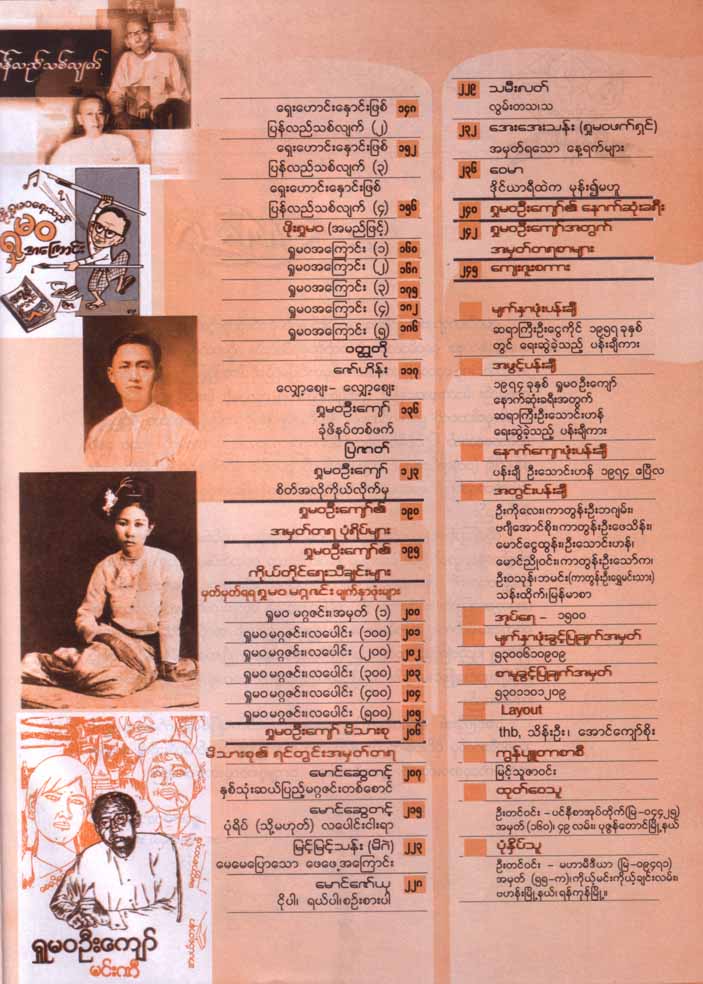 ပြန်လည်သစ်လျှက်
ရှူမဝ
အကြောင်း
ရှေးဟောင်းနှောင်းဖြစ် ၁၄၈
ပြန်လည်သစ်လျက် (၂)
ရှေးဟောင်းနှောင်းဖြစ် ၁၅၂
ပြန်လည်သစ်လျက် (၃)
ရှေးဟောင်းနှောင်းဖြစ်
ပြန်လည်သစ်လျက် (၄) ၁၅၆
ဖိုးရှုမဝ (အမည်ဖြင့်)
ရှုမဝအကြောင်း (၁) ၁၆၀
ရှုမဝအကြောင်း (၂) ၁၆၈
ရှုမဝအကြောင်း (၃) ၁၇၅
ရှုမဝအကြောင်း (၄) ၁၈၂
ရှုမဝအကြောင်း (၅) ၁၈၆
ဝတ္ထုတို
ဇော်ဟိန်း ၁၁၇
လျှော့ဈေး- လျှော့ဈေး
ရှုမဝဦးကျော် ၁၃၆
ခုံဖိနပ်တစ်ဖက်
ပြဇာတ်
ရှုမဝဦးကျော် ၁၂၃
စိတ်အလိုကိုယ်လိုက်မှ
ရှုမဝဦးကျော်၏ ၁၉၀
အမှတ်တရ ပုံရိပ်များ
ရှုမဝဦးကျော်၏ ၁၉၅
ကိုယ်တိုင်ရေးသီချင်းများ
မှတ်မှတ်ရရ ရှုမဝ မဂ္ဂဇင်း မျက်နှာဖုံးများ
ရှုမဝ မဂ္ဂဇင်း၊အမှတ် (၁) ၂၀၀
ရှုမဝ မဂ္ဂဇင်း၊လပေါင်း (၁၀၀) ၂၀၁
ရှုမဝ မဂ္ဂဇင်း၊လပေါင်း (၂၀၀) ၂၀၂
ရှုမဝ မဂ္ဂဇင်း၊လပေါင်း (၃၀၀) ၂၀၃
ရှုမဝ မဂ္ဂဇင်း၊လပေါင်း (၄၀၀) ၂၀၄
ရှုမဝ မဂ္ဂဇင်း၊လပေါင်း (၅၀၀) ၂၀၅
ရှုမဝဦးကျော် မိသားစု ၂၀၆
မိသားစု၏ ရင်တွင်းအမှတ်တရ
မောင်ဆွေတင့် ၂၀၇
နှစ်သုံးဆယ်ပြည့်မဂ္ဂဇင်းတစ်စောင်
မောင်ဆွေတင့် ၂၁၅
ပုံရိပ် (သို့မဟုတ်) လပေါင်းငါးရာ
မြင့်မြင့်သန်း (မိဂဲ) ၂၂၃
မေမေပြောသော ဖေဖေ့အကြောင်း
မောင်ဇော်ယု ၂၂၈
ငိုပါ၊ ရယ်ပါ၊စဉ်းစားပါ
ရှူမဝဦးကျော်
မင်းဏီ
၂၂၉ သမီးလတ်
လွမ်းတသ၊သ
၂၃၂ အေးအေးသန်း (ရှုမဝဖက်ရှင်)
အမှတ်ရသော နေ့ရက်များ
၂၃၆ ဝေမာ
ဒိုင်ယာရီထဲက မုန်း၍မဟူ
၂၄၀ ရှုမဝဦးကျော်၏ နောက်ဆုံးခရီး
၂၄၂ ရှုမဝဦးကျော်အတွက်
အမှတ်တရစာများ
၂၄၅ ကျေးဇူးစကား
မျက်နှာဖုံးပန်းချီ
ဆရာကြီးဦးငွေကိုင် ၁၉၅၇ ခုနှစ်
တွင် ရေးဆွဲခဲ့သည့် ပန်းချီကား
အဖွင့်ပန်းချီ
၁၉၇၄ ခုနှစ် ရှုမဝဦးကျော်
နောက်ဆုံးခရီးအတွက်
ဆရာကြီးဦးသောင်းဟန်
ရေးဆွဲခဲ့သည့် ပန်းချီကား
နောက်ကျောဖုံးပန်းချီ
ပန်းချီ ဦးသောင်းဟန် ၁၉၇၄ ဧပြီလ
အတွင်းပန်းချီ
ဦးကိုလေး၊ကာတွန်းဦးဘဂျမ်း၊
ဗဂျီအောင်စိုး၊ကာတွန်းဦးဖေသိန်း၊
မောင်ငွေထွန်း၊ဦးသောင်းဟန်၊
မောင်ညိုဝင်း၊ကာတွန်းဦးသော်က၊
ဦးဝသုန်၊ဘမင်း(ကာတွန်းဦးရွှေမင်းသား)
သန်းထိုက်၊မြန်မာစာ
အုပ်ရေ - ၁၅၀၀
မျက်နှာဖုံးခွင့်ပြုချက်အမှတ်
၅၃၀၀၆၁၀၉၀၉
စာမူခွင့်ပြုချက်အမှတ်
၅၃၀၁၁၀၁၂၀၉
Layout
thb, သိန်းဦး၊ အောင်ကျော်စိုး
ကွန်ပျူတာစာစီ
မြင့်သူဇာဝင်း
ထုတ်ဝေသူ
ဦးတင်ဝင်း - ပင်နီစာအုပ်တိုက်(မြဲ-၀၄၄၂၅)
အမှတ် (၁၆၀)၊ ၄၉ လမ်း၊ ပုဇွန်တောင်မြို့နယ်
ပုံနှိပ်သူ
ဦးတင်ဝင်း - မဟာမီဒီယာ (မြဲ-၀၅၄၇၁)
အမှတ် (၅၅-က)၊ကိုယ့်မင်းကိုယ့်ချင်းလမ်း၊
ဗဟန်းမြို့နယ်၊ရန်ကုန်မြို့။